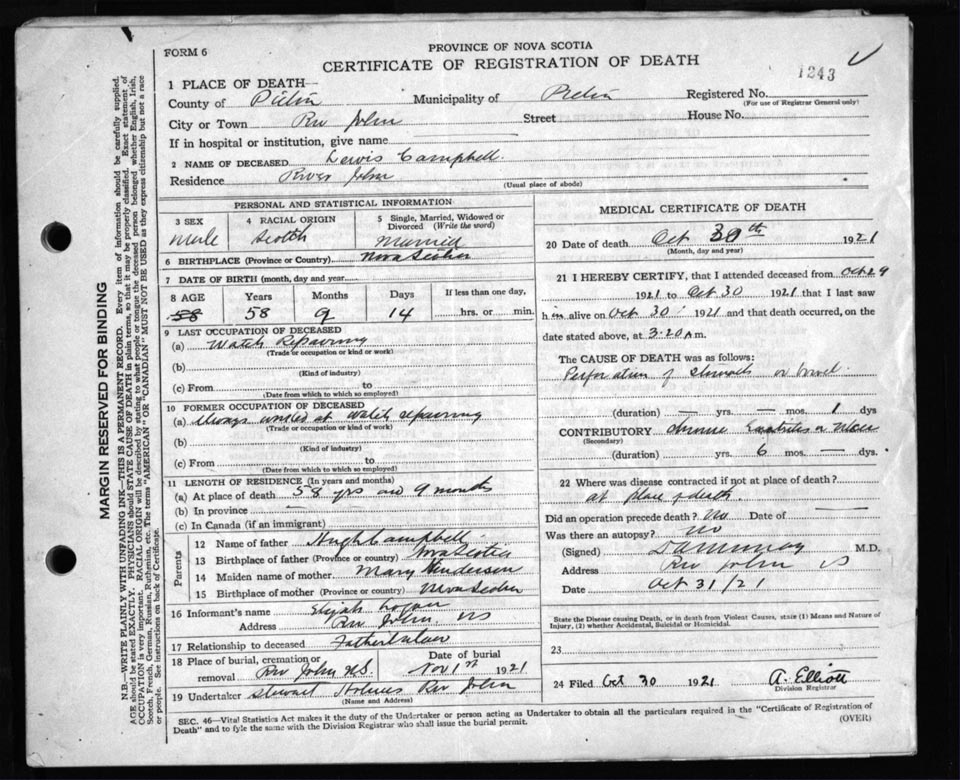 FORM 6
PROVINCE OF NOVA SCOTIA
CERTIFICATE OF REGISTRATION OF DEATH
1243
1 PLACE OF DEATH—
County of Pictou Municipality of Pictou Registered No.
(For use of Registrar General only)
City or Town Riv John Street House No.
If in hospital or institution, give name
2 NAME OF DECEASED Lewis Campbell
Residence River John
(Usual place of abode)
PERSONAL AND STATISTICAL INFORMATION
3 SEX 4 RACIAL ORIGIN 5 Single, Married, Widowed or Divorced (Write the word)
Male Scotch Married
6 BIRTHPLACE (Province or Country) Nova Scotia
7 DATE OF BIRTH (month, day and year)
8 AGE Years Months Days If less than one day,
58 58 9 14 hrs. or min.
9 LAST OCCUPATION OF DECEASED
(a) Watch Repairing
(Trade or occupation or kind or work)
(b)
(Kind of industry)
(c) From to
(Date from which to which so employed)
10 FORMER OCCUPATION OF DECEASED
(a) Always worked at watch repairing
(Trade or occupation or kind of work)
(b)
(Kind of industry)
(c) From to
(Date from which to which so employed)
11 LENGTH OF RESIDENCE (In years and months)
(a) At place of death 58 yrs and 9 months
(b) In province —
(c) In Canada (if an immigrant)
Parents
12 Name of father Hugh Campbell
13 Birthplace of father (Province or country) Nova Scotia
14 Maiden name of mother Mary Henderson
15 Birthplace of mother (Province or country) Nova Scotia
16 Informant's name Elijah
Address Riv John, NS
17 Relationship to deceased Fatherinlaw
18 Place of burial, cremation or removal Riv John N.S. Date of burial Nov 1st 1921
19 Undertaker Stewart Holmes Riv John
(Name and Address)
MEDICAL CERTIFICATE OF DEATH
20 Date of death Oct 30th 1921
(Month, day and year)
21 I HEREBY CERTIFY, that I attended deceased from Oct 29
1921 to Oct 30 1921 that I last saw
him alive on Oct 30 1921 and that death occurred, on the
date stated above, at 3.20 a m.
The CAUSE OF DEATH was as follows:
Perforation of stomach or bowel
(duration) — yrs. — mos. 1 dys
CONTRIBUTORY chronic
(Secondary)
(duration) yrs. 6 mos. — dys.
22 Where was disease contracted if not at place of death?
at place of death.
Did an operation precede death? No Date of —
Was there an autopsy? no
(Signed) M.D.
Address Riv John NS
Date Oct 31/21
State the Disease causing Death, or in death from Violent Causes, state (1) Means and Nature of
Injury, (2) whether Accidental, Suicidal or Homicidal.
23
24 Filed Oct 30 1921 A. Elliott
Division Registrar
SEC. 46—Vital Statistics Act makes it the duty of the Undertaker or person acting as Undertaker to obtain all the particulars required in the "Certificate of Registration of
Death" and to fyle the same with the Division Registrar who shall issue the burial permit.
(OVER)
MARGIN RESERVED FOR BINDING
N.B.—WRITE PLAINLY WITH UNFADING INK—THIS IS A PERMANENT RECORD. Every item of information should be carefully supplied.
AGE should be stated EXACTLY. PHYSICIANS should STATE CAUSE OF DEATH in plain terms, so that it may be properly classified. Exact statement of
OCCUPATION is very important. RACIAL ORIGIN will be described by stating to what people or tongue the deceased person belonged whether English, Irish,
Scotch, French, German, Russian, Ruthenian, etc. The terms "AMERICAN" OR "CANADIAN" MUST NOT BE USED as they express citizenship but not a race
or people. See instructions on back of Certificate.